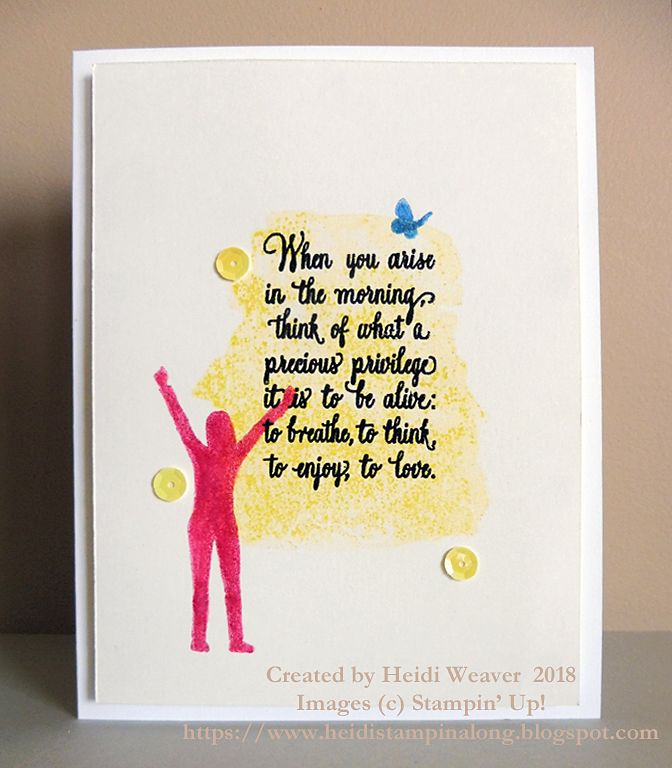 When you arise
in the morning,
think of what a
precious privilege
it is to be alive:
to breathe, to think,
to enjoy, to love.
Created by Heidi Weaver 2018
Images (c) Stampin' Up!
https://www.heidistampinalong.blogspot.com